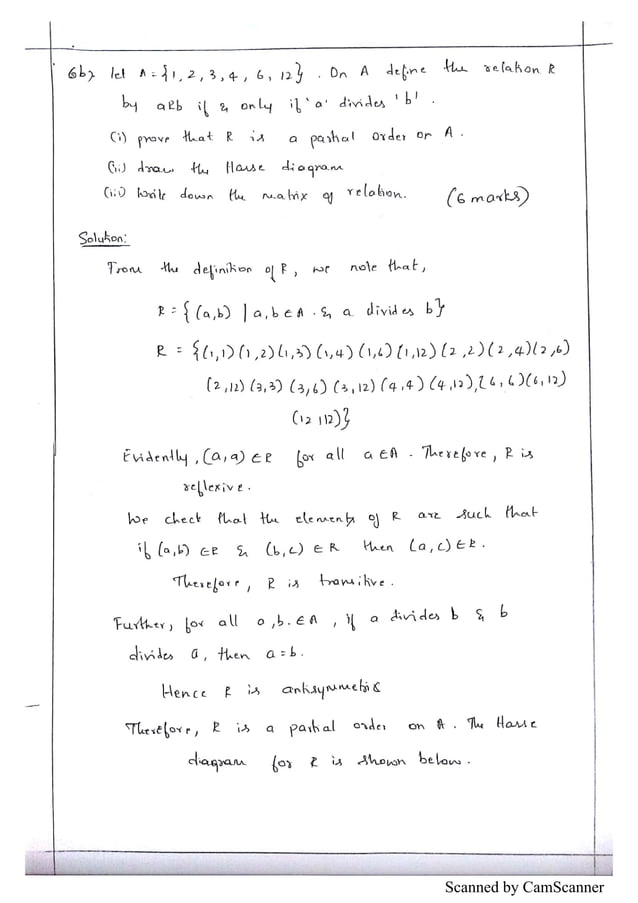 6b> let A = {1, 2, 3, 4, 6, 12} . On A define the relation R
by aRb if & only if 'a' divides 'b' .
(i) prove that R is a partial order on A .
(ii) draw the Hasse diagram
(iii) Write down the matrix of relation. (6 marks)
Solution:
From the definition of R, we note that,
R = { (a,b) | a,b ∈ A . & a divides b}
R = {(1,1) (1,2) (1,3) (1,4) (1,6) (1,12) (2,2) (2,4) (2,6)
(2,12) (3,3) (3,6) (3,12) (4,4) (4,12), (6,6) (6,12)
(12,12)}
Evidently, (a,a) ∈ R for all a ∈ A . Therefore, R is
reflexive.
We check that the elements of R are such that
if (a,b) ∈ R & (b,c) ∈ R then (a,c) ∈ R .
Therefore, R is transitive .
Further, for all a,b. ∈ A , if a divides b & b
divides a, then a = b .
Hence R is antisymmetric
Therefore, R is a partial order on A . The Hasse
diagram for R is shown below .
Scanned by CamScanner